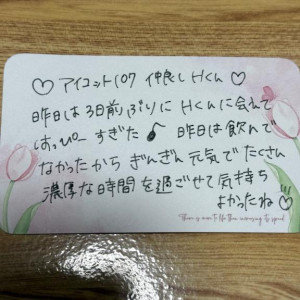 ♡ アイコット107 仲良しHくん ♡
昨日は3日前ぶりに Hくんに会えて
はっぴー すぎた♪ 昨日は飲んで
なかったから ぎんぎん元気で たくさん
濃厚な時間を過ごせて気持ち
よかったね!!!♡
There is more to life than increasing its speed